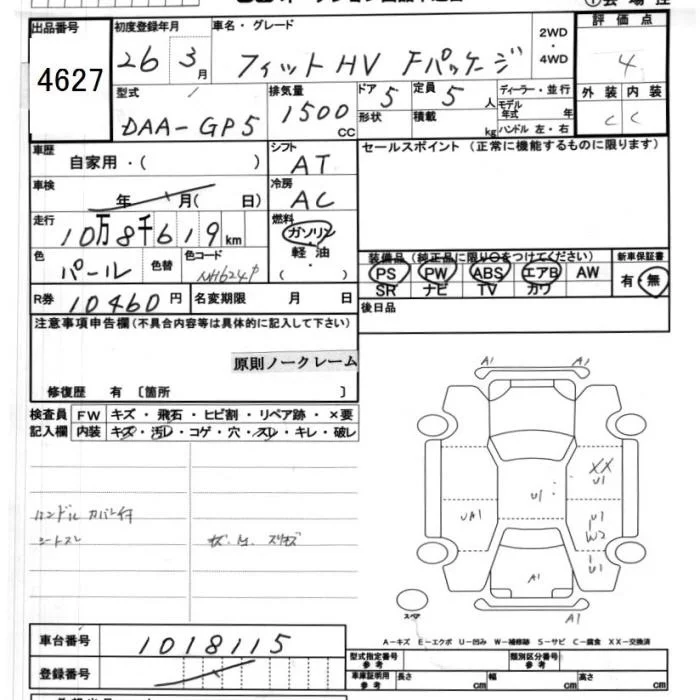 出品番号 初度登録年月 車名・グレード 評価点
4627
26 3月 フィットHV Fパッケージ 2WD・4WD 4
型式 排気量 ドア 定員 ディーラー・並行 外装 内装
DAA-GP5 1500 CC 5 5人 モデル年式 年 C C
形状 積載 kg ハンドル 左・右
車歴 シフト セールスポイント(正常に機能するものに限ります)
自家用・( ) AT
車検 冷房
年 月( 日) AC
走行 燃料
10万8千619km ガソリン
軽油
( )
色 色替 色コード
パール NH624P
装備品(純正品に限り○をつけてください) 新車保証書
PS PW ABS エアB AW 有・無
SR ナビ TV カワ
R券 10460円 名変期限 月 日 後日品
注意事項申告欄(不具合内容等は具体的に記入して下さい)
原則ノークレーム
修復歴 有 〔箇所 〕
検査員 FW キズ・飛石・ヒビ割・リペア跡・×要
記入欄 内装 キズ・汚レ・コゲ・穴・スレ・キレ・破レ
ハンドル カバー付
シートスレ
A1 A1
XX
U1
U1
UA1
U1
W2
U1
A1
A1
スペア
A-キズ E-エクボ U-凹み W-補修跡 S-サビ C-腐食 XX-交換済
車台番号 1018115
型式指定番号 参考 類別区分番号 参考
登録番号
車庫証明用 参考 長さ cm 幅 cm 高さ cm